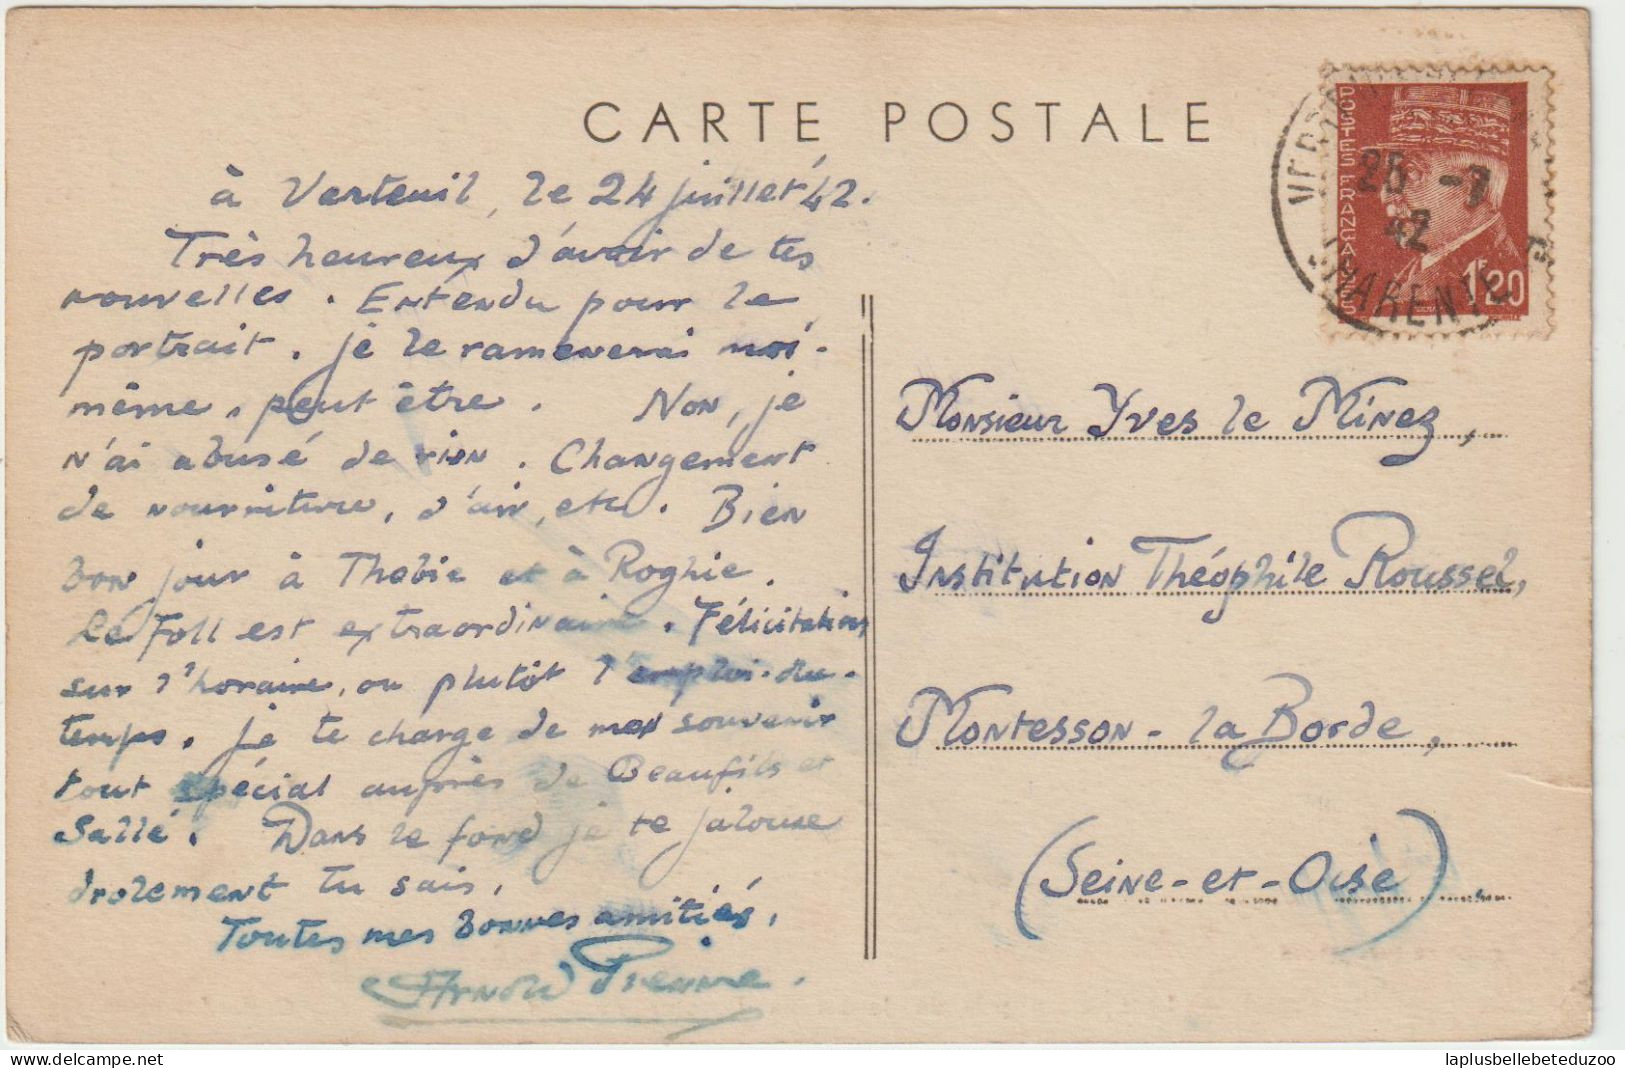 CARTE POSTALE
à Verteuil, le 24 juillet '42.
Très heureux d'avoir de tes
nouvelles. Entendu pour le
portrait. je le ramenerai moi-
même, peut être. Non, je
n'ai abusé de rien. Changement
de nourriture, d'air, etc. Bien
bon jour à Thobie et à Roghie.
Le Foll est extraordinaire. Félicitations
sur l'horaire, ou plutôt l'emploi-du-
temps. je te charge de mon souvenir
tout spécial auprès de Beaufils et
Sallé. Dans le fond je te jalouse
drolement tu sais.
Toutes mes bonnes amitiés,
Arnold Pierre.
POSTES FRANÇAISES
1F20
25 -7
42
CHARENTE
Monsieur Yves le Minez,
Institution Théophile Roussel,
Montesson - la Borde,
(Seine-et-Oise)
laplusbellebeteduzoo